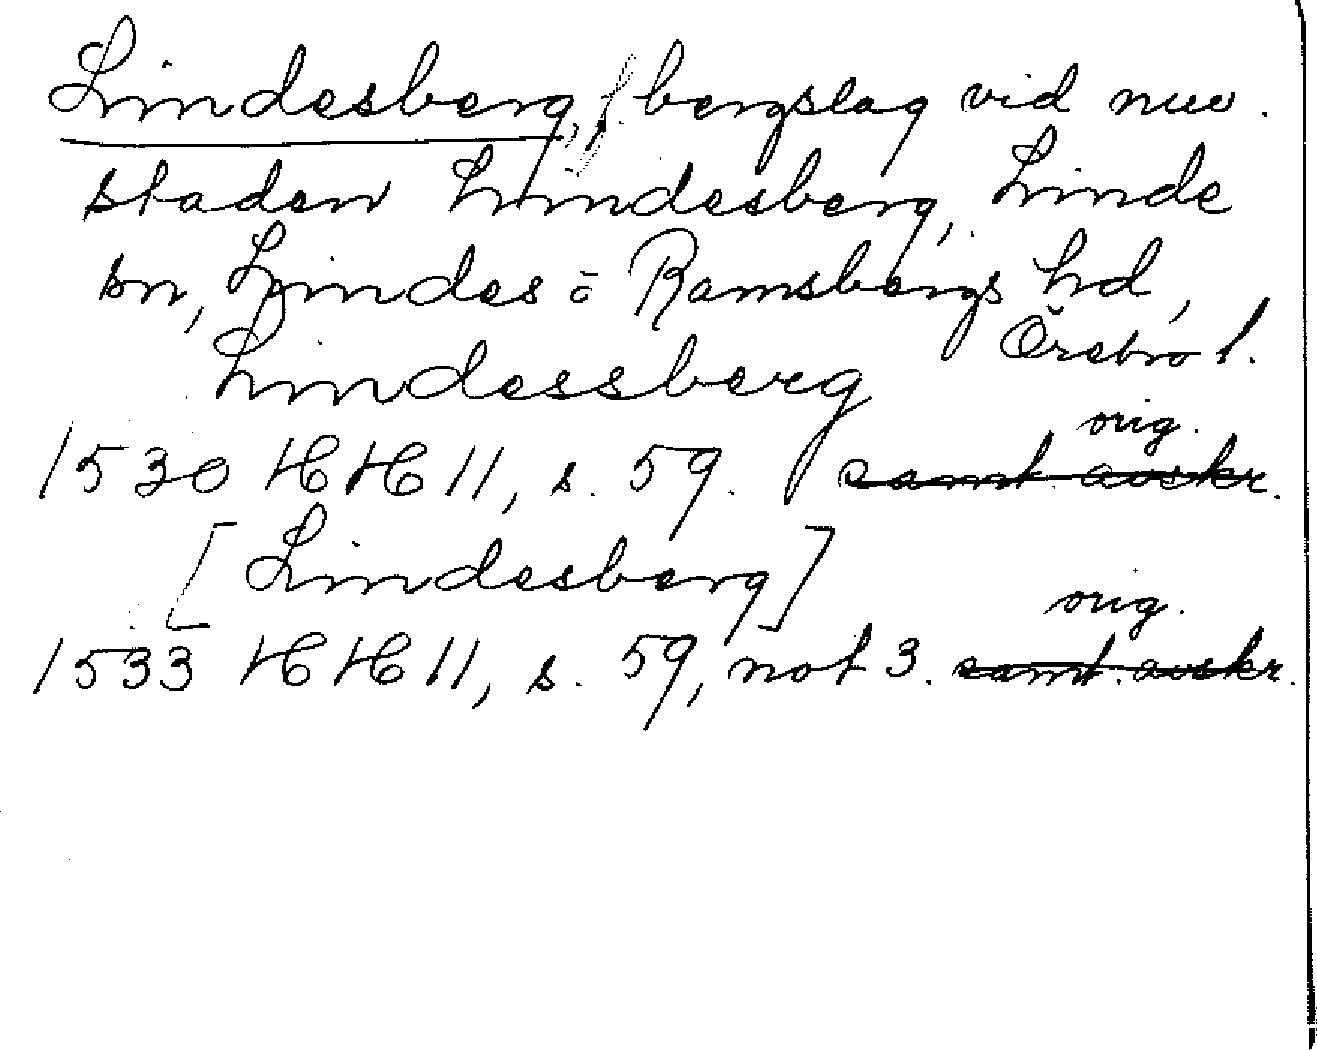 Lindesberg, f. bergslag vid nuv.
staden Lindesberg, Linde
sn, Lindes o Ramsbergs hd,
Örebro l.
Lindessberg
orig.
1530 HH 11, s. 59. samt. avskr.
[Lindesberg]
orig.
1533 HH 11, s. 59, not 3. samt. avskr.